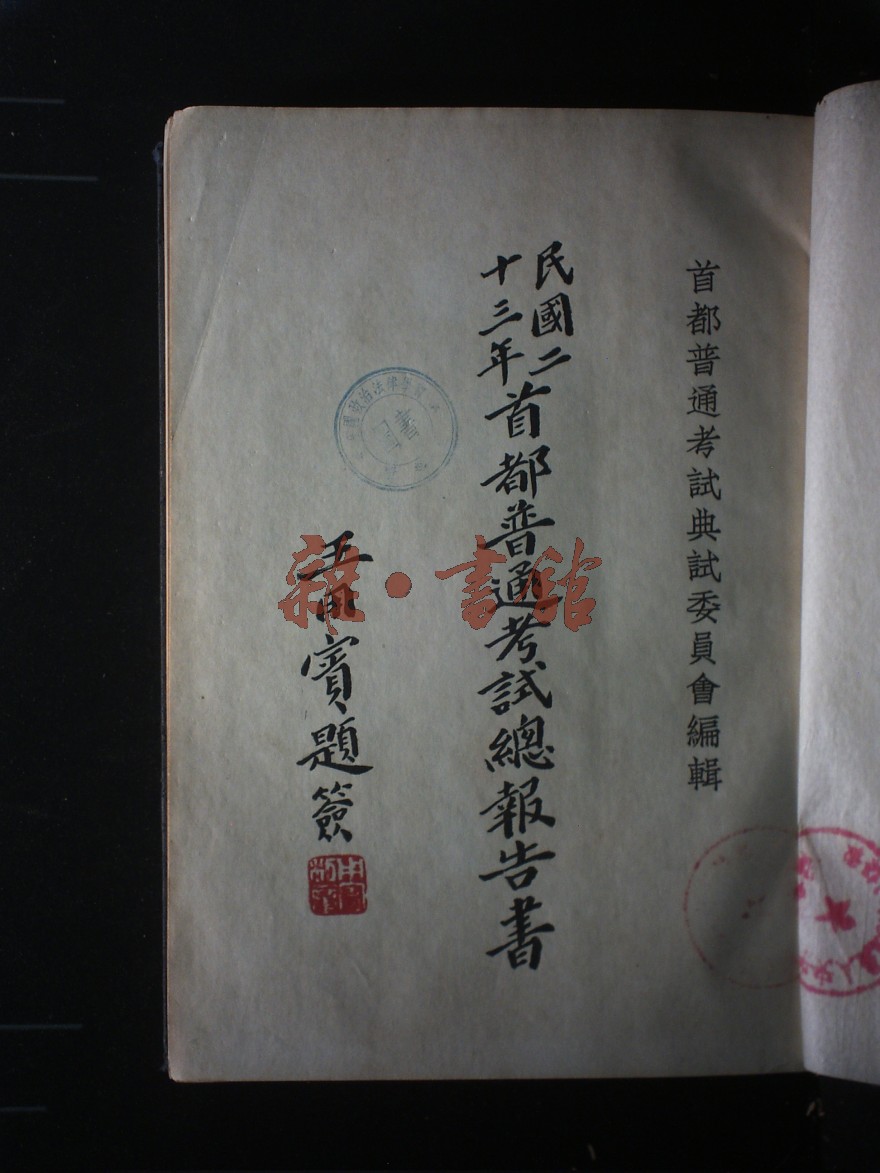 首都普通考試典試委員會編輯
民國二
十三年
首都普通考試總報告書
王用賓題簽
雜·書館
政治法律
圖書